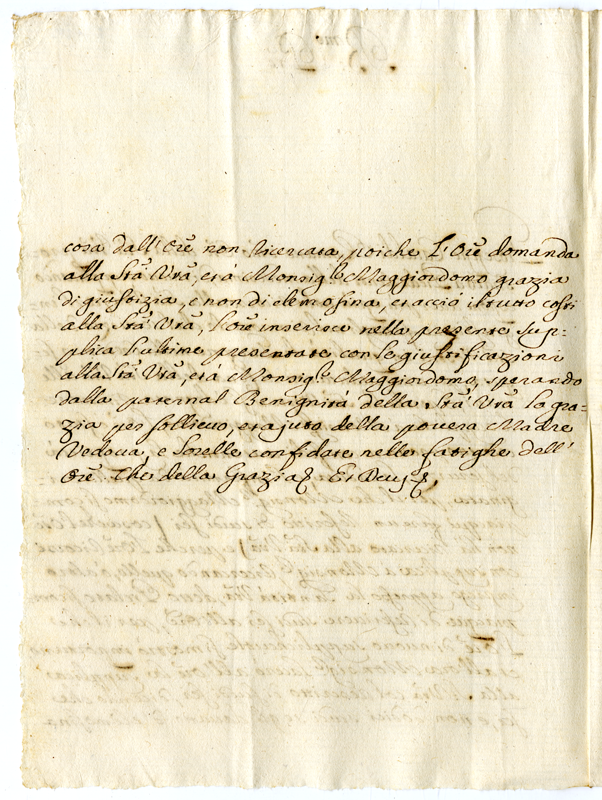 cosa dall' Ore non ricercata, poiche l'Ore domanda
alla Stà Vrà, et à Monsig.re Maggiordomo grazia
di giustizia, e non di elemosina, et acciò il tutto costi
alla Stà Vrà, l'Ore inserisce nella presente sup=
plica l'ultime presentate con le giustificazioni
alla Stà Vrà, et à Monsig.re Maggiordomo, sperando
dalla paternal Benignità della Stà Vrà la gra=
zia per sollievo, et ajuto della povera Madre
Vedova, e Sorelle confidate nelle fatighe dell'
Ore. Che della Grazia Et Deus